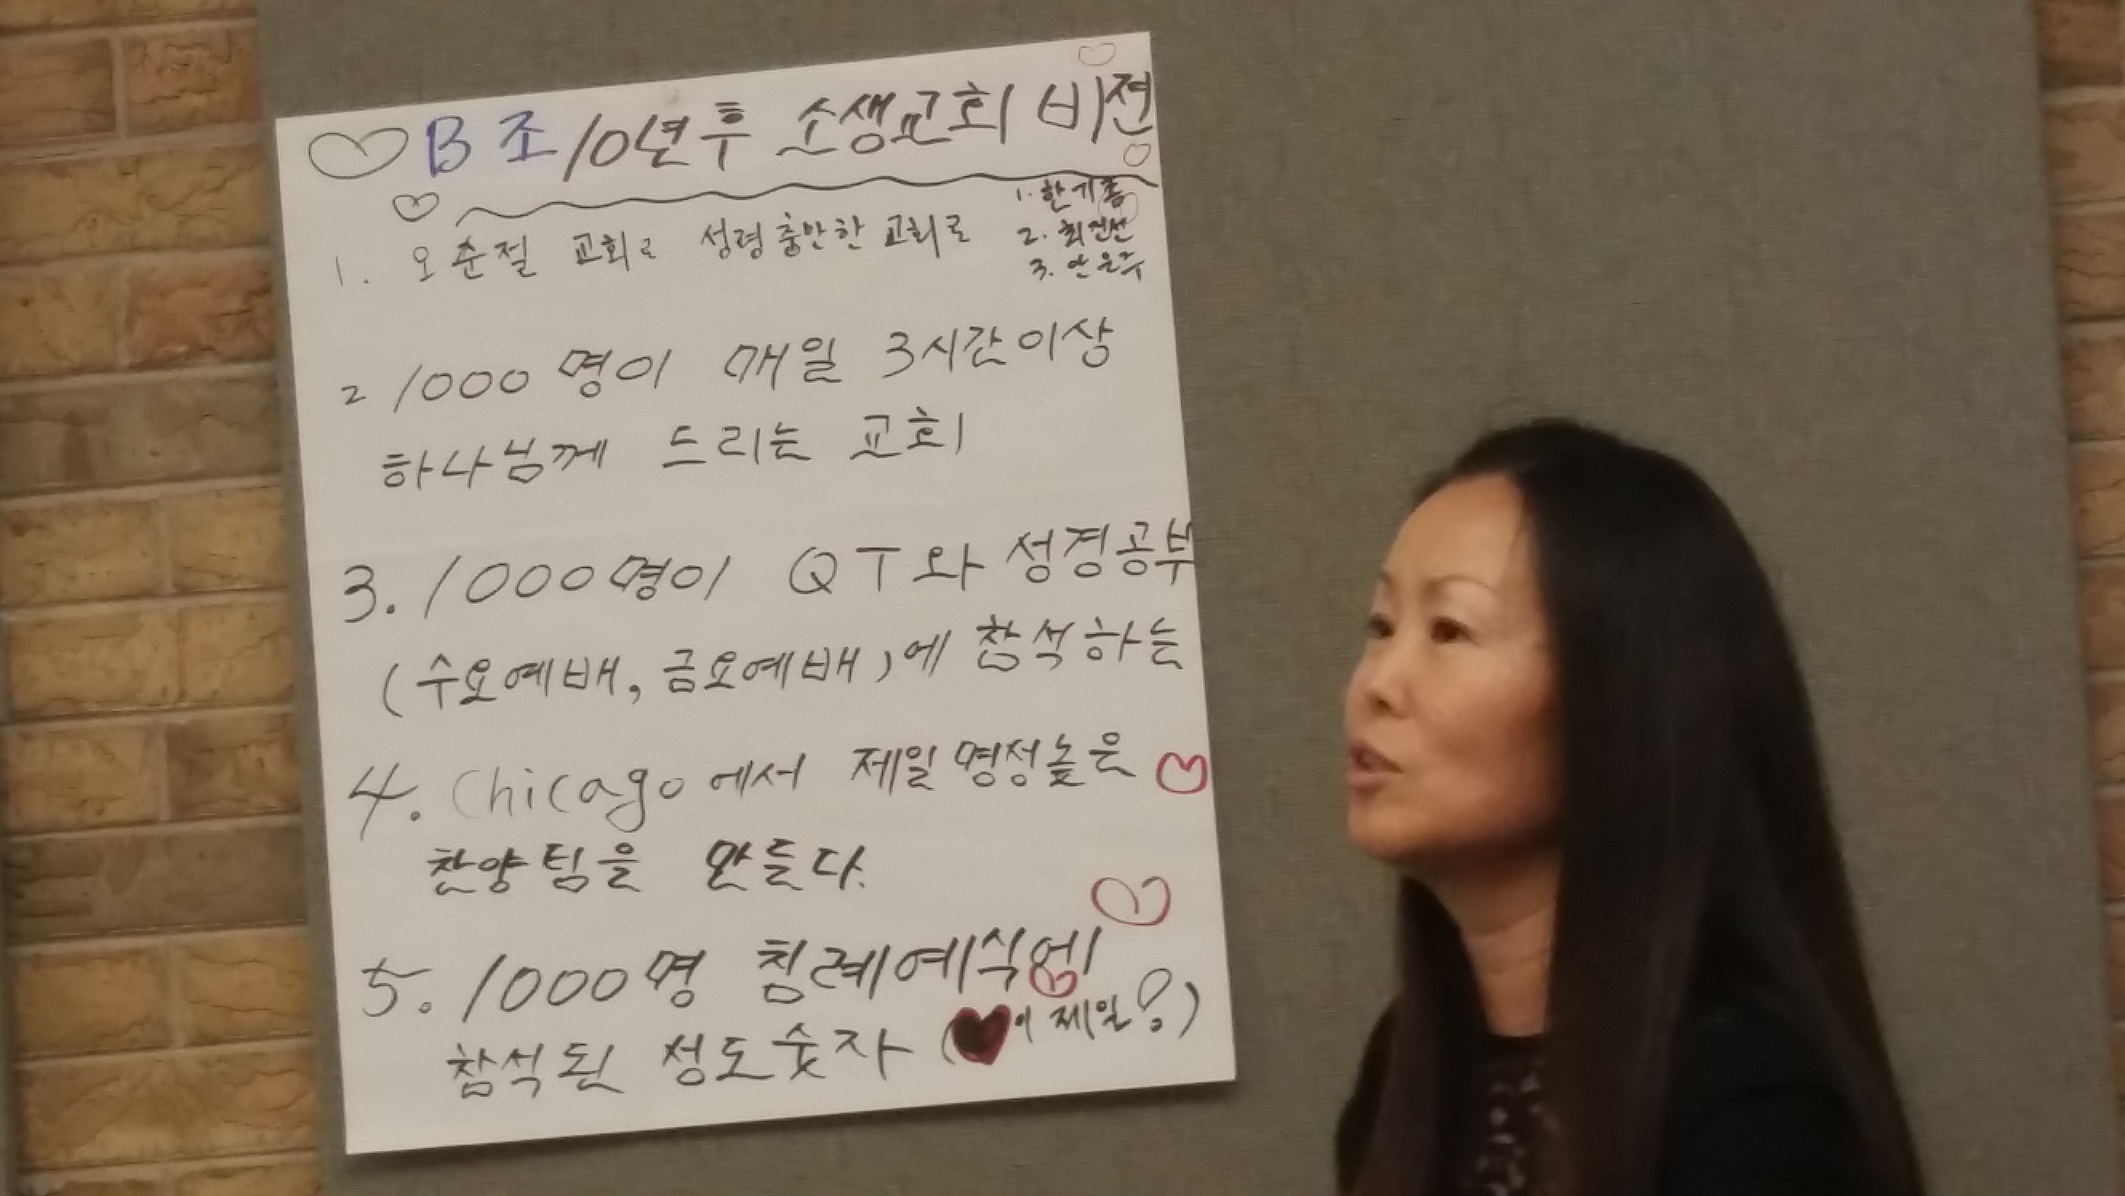 B조 10년후 소생교회 비젼
1. 한기홈
2. 최인선
3. 안은주
1. 오순절 교회로 성령충만한 교회로
2 1000명이 매일 3시간이상
하나님께 드리는 교회
3. 1000명이 QT와 성경공부
(수요예배, 금요예배,)에 참석하는
4. Chicago에서 제일 명성높은
찬양팀을 만들다.
5. 1000명 침례예식에
참석된 성도숫자 (이 제일!)